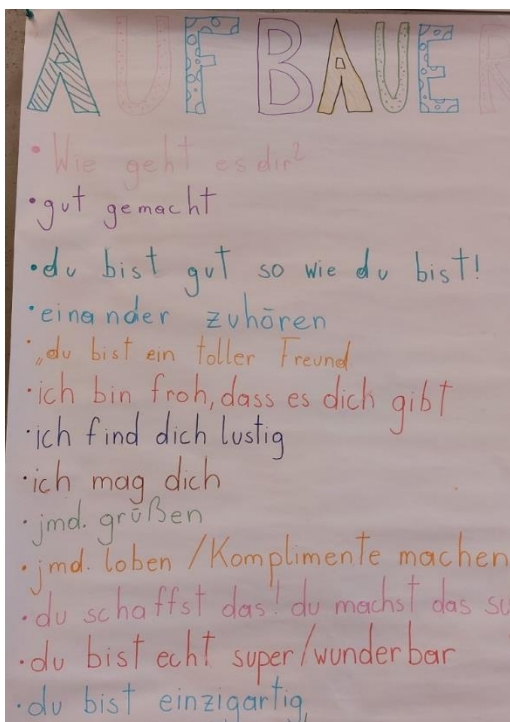 AUFBAUER
• Wie geht es dir?
• gut gemacht
• du bist gut so wie du bist!
• einander zuhören
• „du bist ein toller Freund
• ich bin froh, dass es dich gibt
• ich find dich lustig
• ich mag dich
• jmd. grüßen
• jmd. loben / Komplimente machen
• du schaffst das! du machst das su
• du bist echt super/wunderbar
• du bist einzigartig